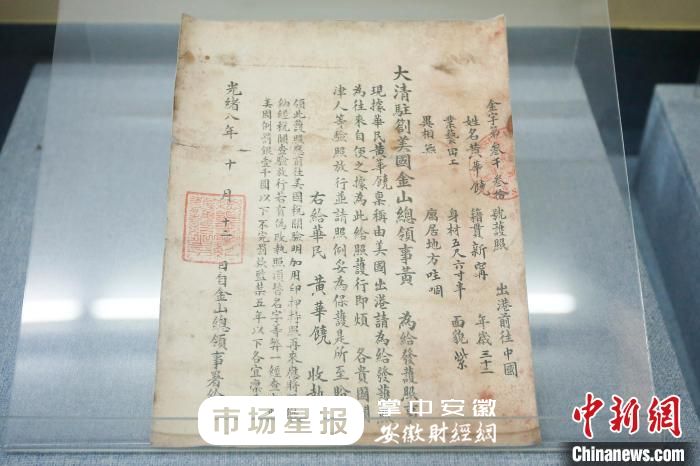 金字第叁千叁拾 號護照 出港前往中國
姓名黃華饒 籍貫新寗 年歲三十二
業藝田工 身材五尺六寸半 面貌紫
異相無 寓居地方哇咽
大清駐劄美國金山總領事黃 為給發護照
現據華民黃華饒稟稱由美國出港請為給發護
為往來自便之據為此給照護行即煩 各貴國關
津人等驗照放行並請照例妥為保護是所至盼
右給華民 黃華饒 收執
領此護照應前往美國稅關驗明加用印押持照再來應將
經稅關查驗放行若有偽改執照頂替名字等弊一經查
美國例罰銀壹千圓以下不完罰款監禁五年以下各宜凜
光緒八年 十一月 十二 日自金山總領事署給
市场星报
掌中安徽
安徽财经網
中新网
Chinanews.com